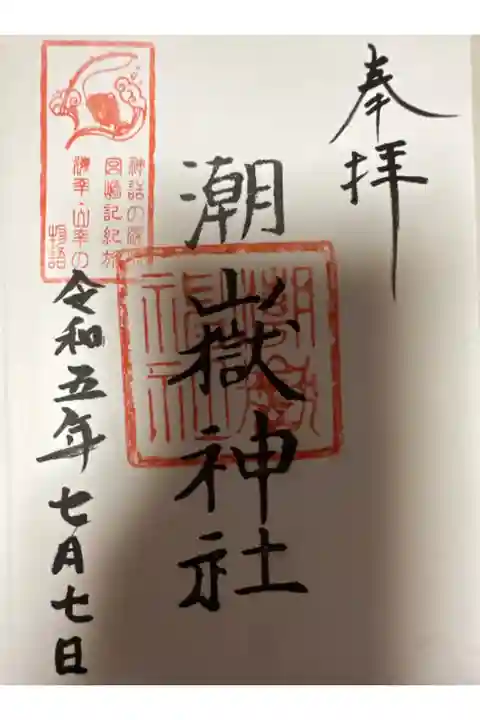 奉拝
潮嶽神社
潮嶽神社
神話の源流
宮崎記紀旅
海幸・山幸の
物語
令和五年七月七日